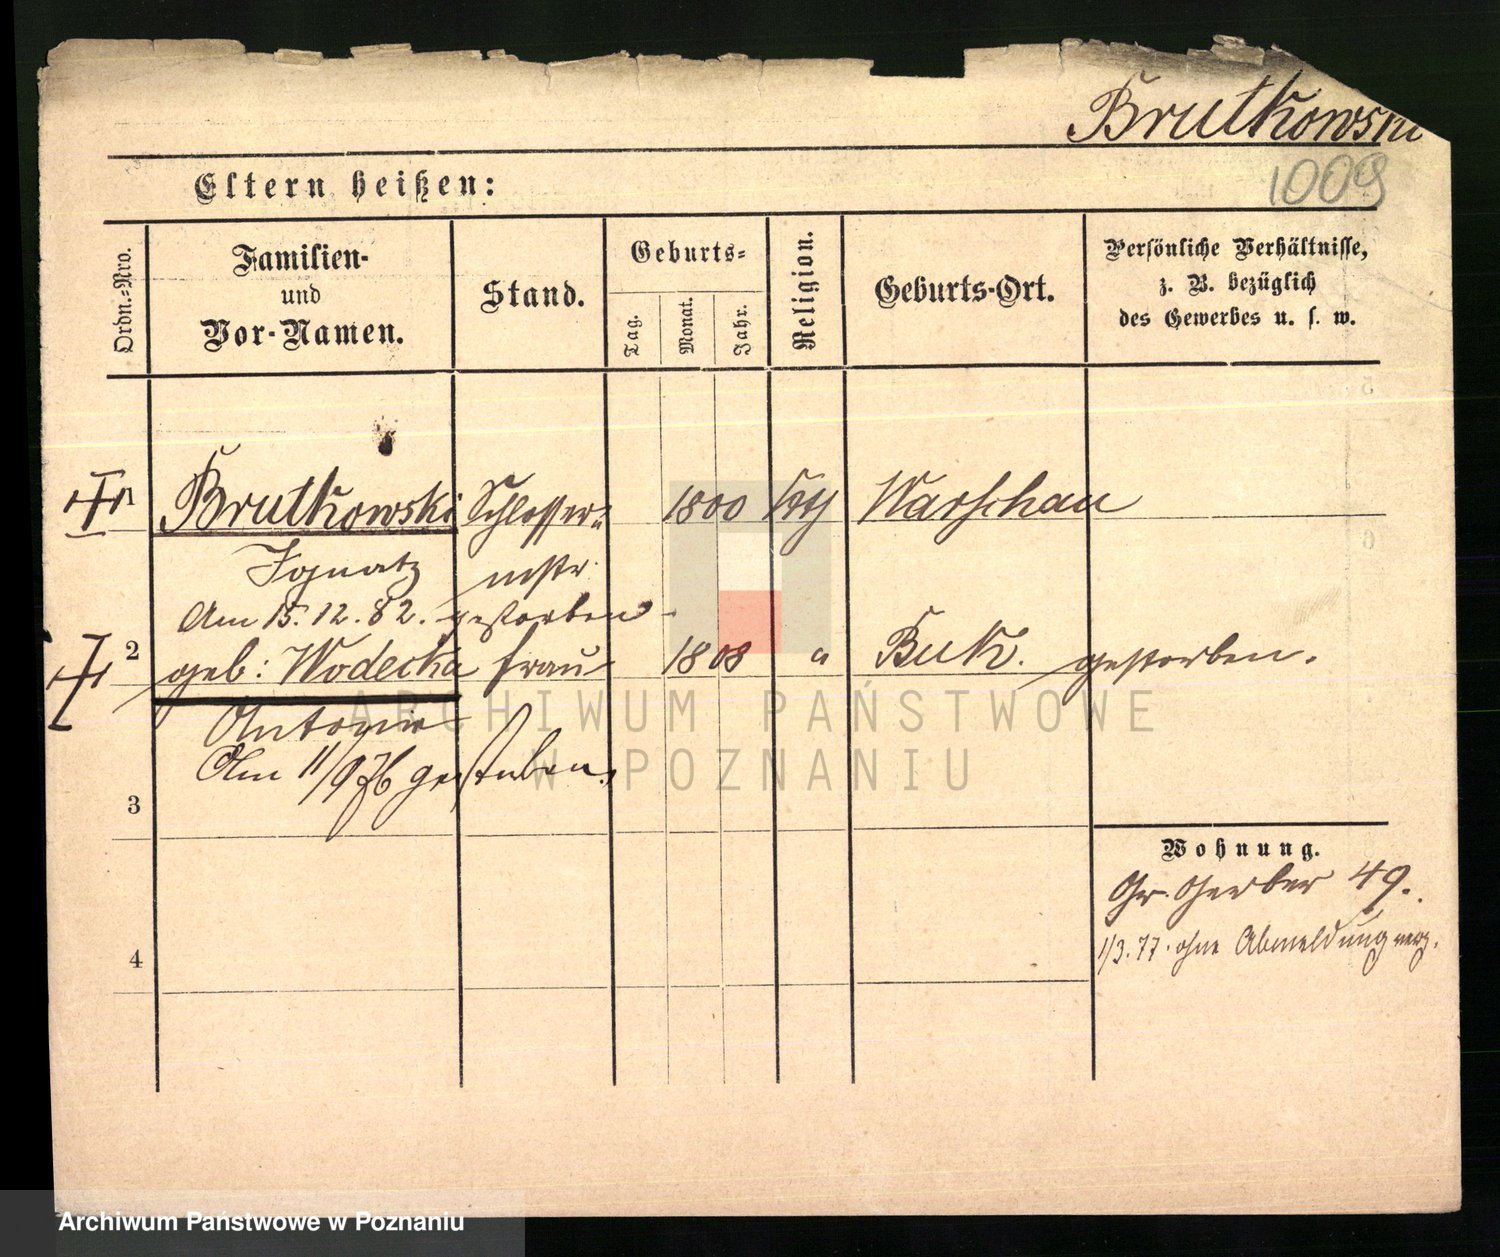 Brutkowski
1009
Eltern heißen:
Ordn.-Nro.
Familien-
und
Vor-Namen.
Stand.
Geburts-
Tag.
Monat.
Jahr.
Religion.
Geburts-Ort.
Persönliche Verhältnisse,
z. B. bezüglich
des Gewerbes u. s. w.
1 Brutkowski Schlosser- 1800 kth Warschau
Ignatz mstr.
Am 15.12.82. gestorben
2 geb: Wodecka Frau 1808 " Buk. gestorben.
Antonie
Am 11/9 76 gestorben.
3
4
Wohnung.
Gr. Gerber 49.
1/3.77. ohne Abmeldung verz.
ARCHIWUM PAŃSTWOWE
W POZNANIU
Archiwum Państwowe w Poznaniu